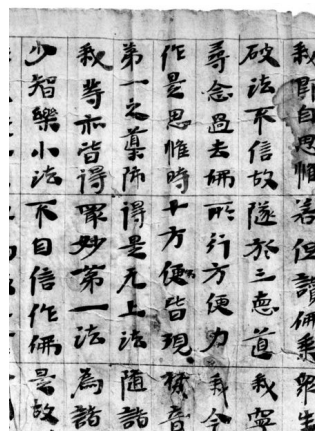 我即自思惟 若但讚佛乘 眾生
破法不信故 墜於三惡道 我寧
尋念過去佛 所行方便力 我今
作是思惟時 十方便皆現 梵音
第一之導師 得是无上法 隨諸
我等亦皆得 最妙第一法 為諸
少智樂小法 不自信作佛 是故